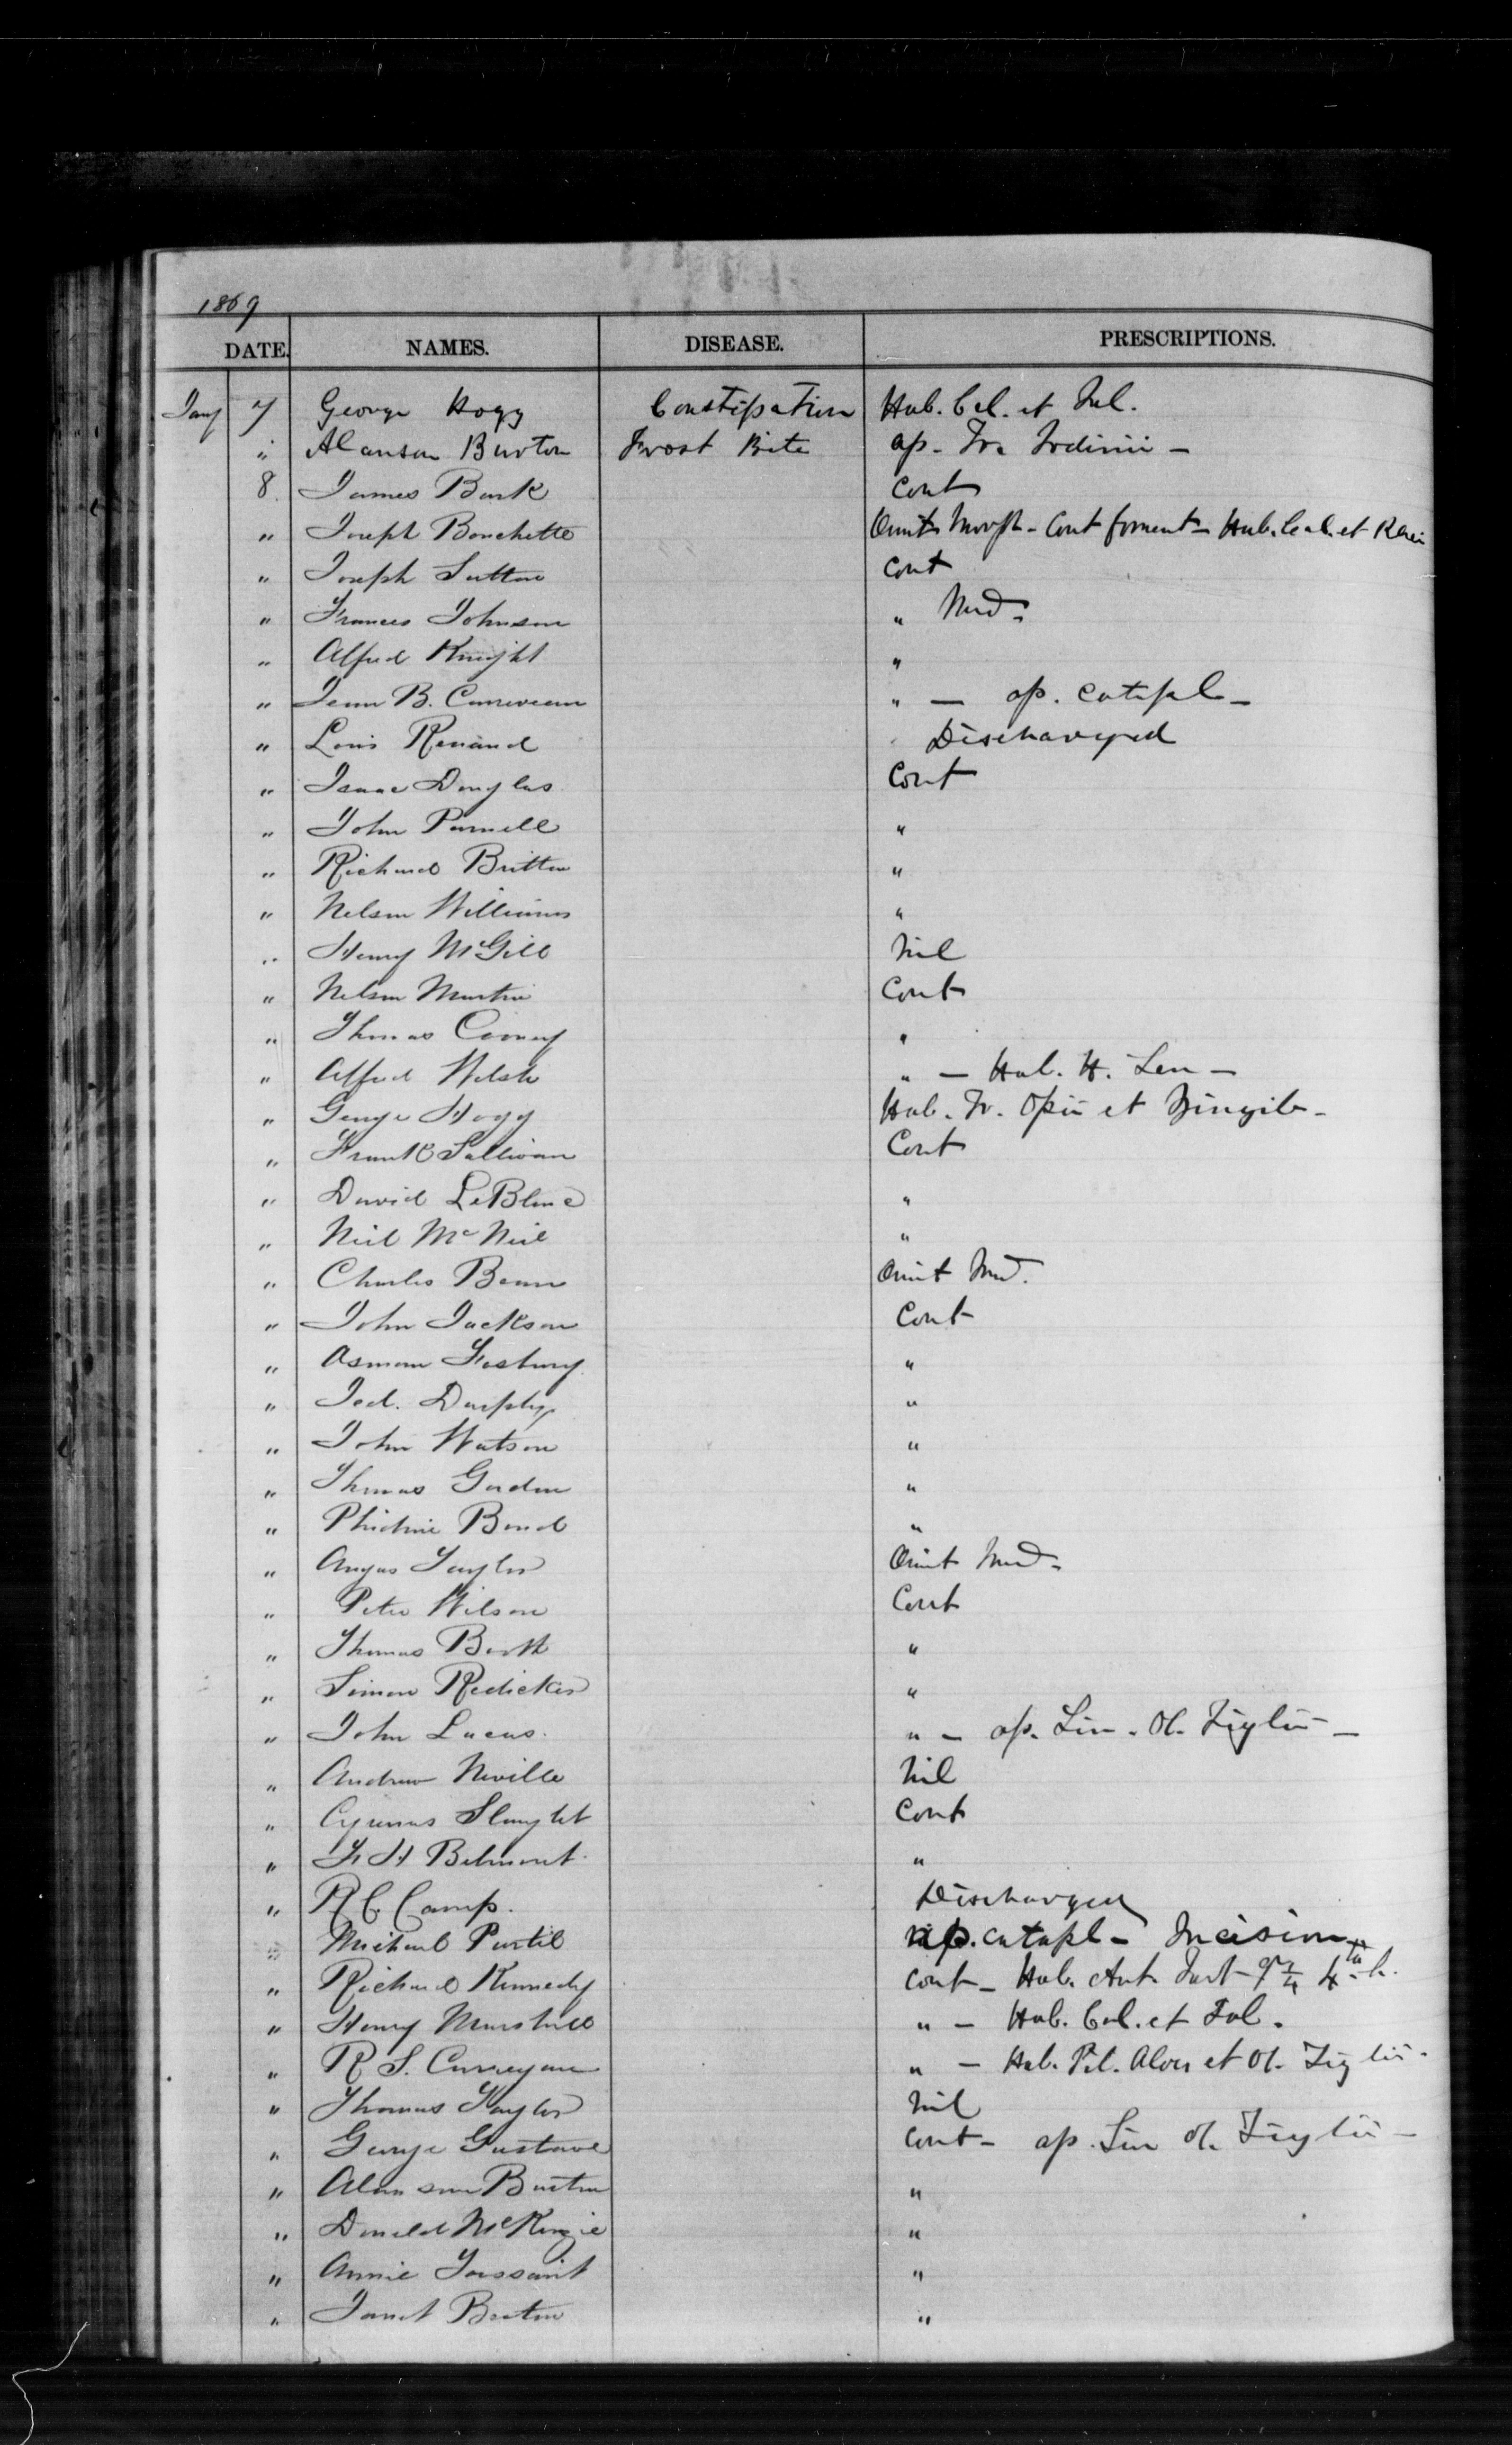 1869
DATE. NAMES. DISEASE. PRESCRIPTIONS.
Jany 7 George Hogg Constipation Hab. Cal. et Jal.
" Alanson Burton Frost Bite ap. Tr. Iodinii -
8. James Bark Cont
" Joseph Bouchette Omit Morph - Cont foment - Hab. Cal. et Rhei
" Joseph Sutton Cont
" Frances Johnson " Med -
" Alfred Knight "
" Jean B. " - ap. catapl -
" Louis Renaud Discharged
" Isaac Douglas Cont
" John Purnell "
" Richard Britton "
" Nelson Williams "
" Henry McGill Nil
" Nelson Martin Cont
" Thomas Cooney "
" Alfred Welsh " - Hab. H. Sen -
" George Hogg Hab. Tr. Opii et Zingib -
" Frank Sullivan Cont
" David LeBlanc "
" Neil McNeil "
" Charles Bean Omit Med.
" John Jackson Cont
" Asmom Fosbury "
" Jed. Durphy "
" John Watson "
" Thomas Gordon "
" Bond "
" Angus Taylor Omit Med -
" Peter Wilson Cont
" Thomas Booth "
" Simon Redicker "
" John Lucas. " - ap. Lin. Ol. Tiglii -
" Andrew Neville Nil
" Cyrenus Slaught Cont
" F. H Belmont. "
" R C. Camp. Discharged
" Michael Purtil ap. catapl - Incision
" Richard Kennedy Cont - Hab. Ant. Tart - gr ¼ 4th h.
" Henry Marshall " - Hab. Cal. et Jal.
" R S. " - Hab. Pil. Aloes et Ol. Tiglii -
" Thomas Taylor Nil
" George Gustave Cont - ap. Lin Ol. Tiglii -
" Alanson Burton "
" Donald McKenzie "
" Annie Toussaint "
" Janet Burton "